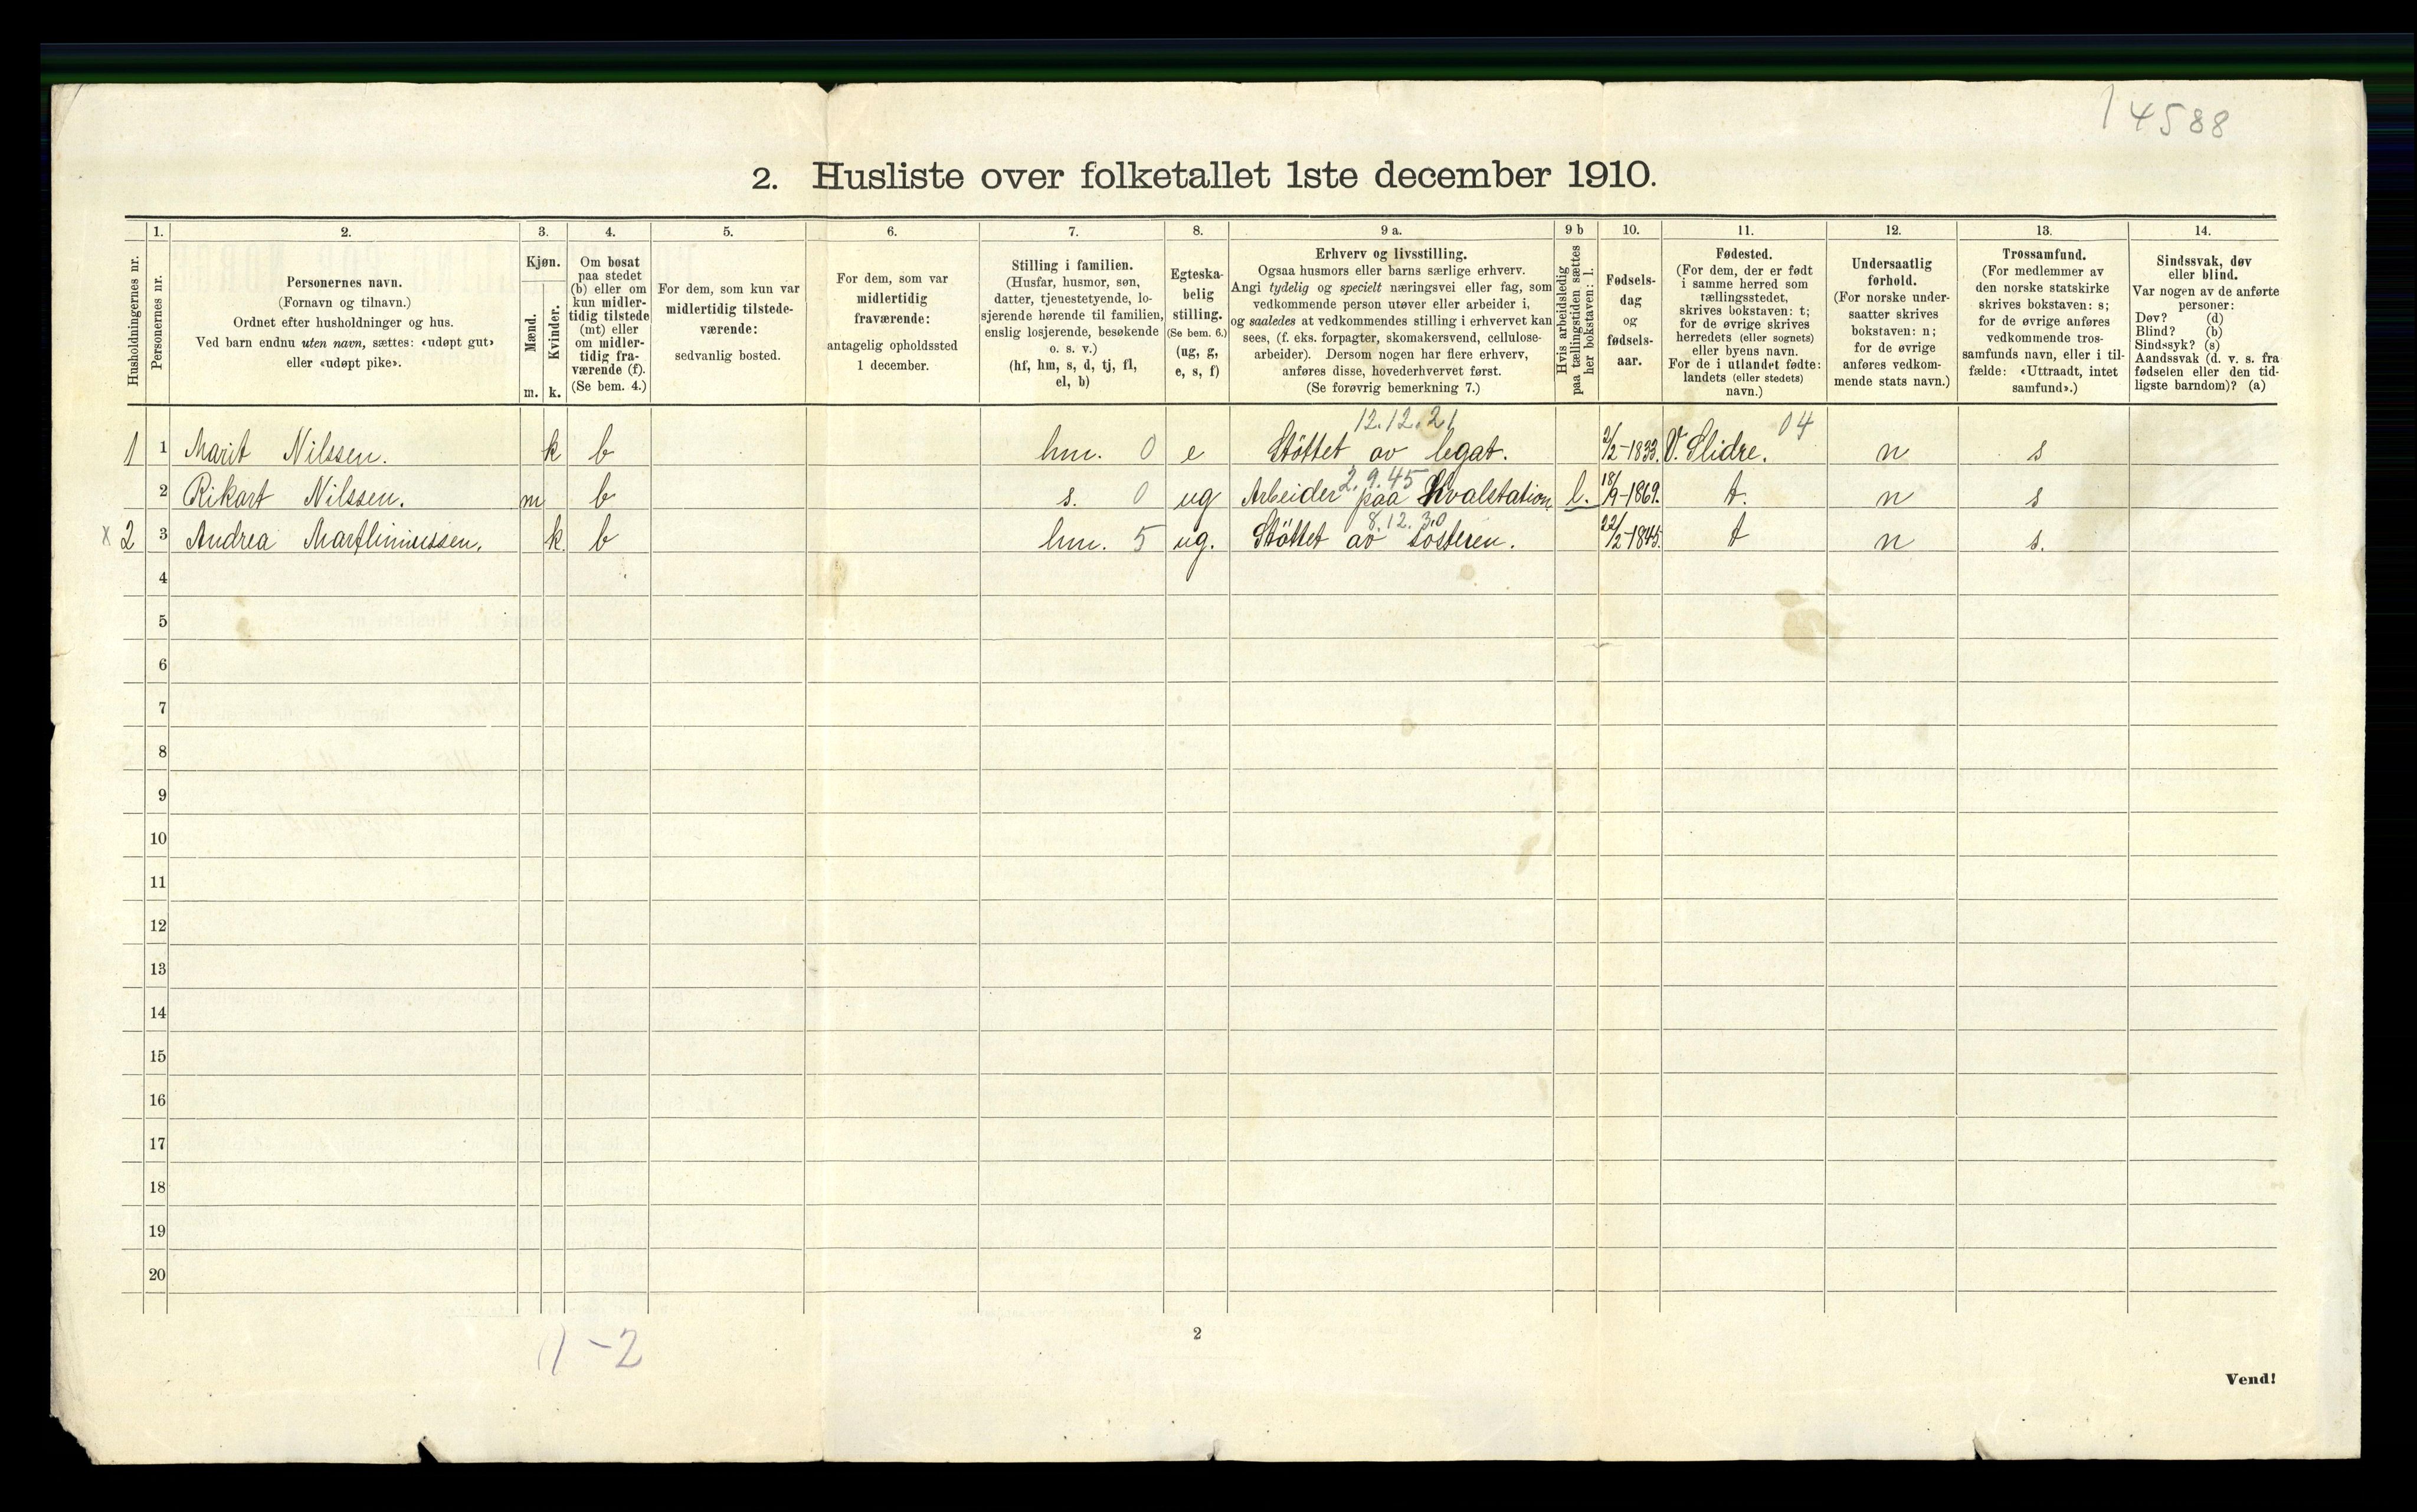 14588
2. Husliste over folketallet 1ste december 1910.
Husholdningernes nr.
1.
Personernes nr.
2.
Personernes navn.
(Fornavn og tilnavn.)
Ordnet efter husholdninger og hus.
Ved barn endnu uten navn, sættes: «udøpt gut»
eller «udøpt pike».
3.
Kjøn.
Mænd.
Kvinder.
m. k.
4.
Om bosat
paa stedet
(b) eller om
kun midler-
tidig tilstede
(mt) eller
om midler-
tidig fra-
værende (f).
(Se bem. 4.)
5.
For dem, som kun var
midlertidig tilstede-
værende:
sedvanlig bosted.
6.
For dem, som var
midlertidig
fraværende:
antagelig opholdssted
1 december.
7.
Stilling i familien.
(Husfar, husmor, søn,
datter, tjenestetyende, lo-
sjerende hørende til familien,
enslig losjerende, besøkende
o. s. v.)
(hf, hm, s, d, tj, fl,
el, b)
8.
Egteska-
belig
stilling.
(Se bem. 6.)
(ug, g,
e, s, f)
9 a.
Erhverv og livsstilling.
Ogsaa husmors eller barns særlige erhverv.
Angi tydelig og specielt næringsvei eller fag, som
vedkommende person utøver eller arbeider i,
og saaledes at vedkommendes stilling i erhvervet kan
sees, (f. eks. forpagter, skomakersvend, cellulose-
arbeider). Dersom nogen har flere erhverv,
anføres disse, hovederhvervet først.
(Se forøvrig bemerkning 7.)
9 b
Hvis arbeidsledig
paa tællingstiden sættes
her bokstaven: l.
10.
Fødsels-
dag
og
fødsels-
aar.
11.
Fødested.
(For dem, der er født
i samme herred som
tællingsstedet,
skrives bokstaven: t;
for de øvrige skrives
herredets (eller sognets)
eller byens navn.
For de i utlandet fødte:
landets (eller stedets)
navn.)
12.
Undersaatlig
forhold.
(For norske under-
saatter skrives
bokstaven: n;
for de øvrige
anføres vedkom-
mende stats navn.)
13.
Trossamfund.
(For medlemmer av
den norske statskirke
skrives bokstaven: s;
for de øvrige anføres
vedkommende tros-
samfunds navn, eller i til-
fælde: «Uttraadt, intet
samfund».)
14.
Sindssvak, døv
eller blind.
Var nogen av de anførte
personer:
Døv? (d)
Blind? (b)
Sindssyk? (s)
Aandssvak (d. v. s. fra
fødselen eller den tid-
ligste barndom)? (a)
12.12.21 04
1 1 Marit Nilssen. k b hm. 0 e Støttet av legat. 2/2-1833. V. Slidre. n s
2.9.45
2 Rikart Nilssen. m b s. 0 ug Arbeider paa Hvalstation l. 18/9-1869. t. n s
8.12.30
x 2 3 Andrea k. b hm. 5 ug. Støttet av søsteren. 22/2-1845. t n s.
4
5
6
7
8
9
10
11
12
13
14
15
16
17
18
19
20
1-2
2
Vend!